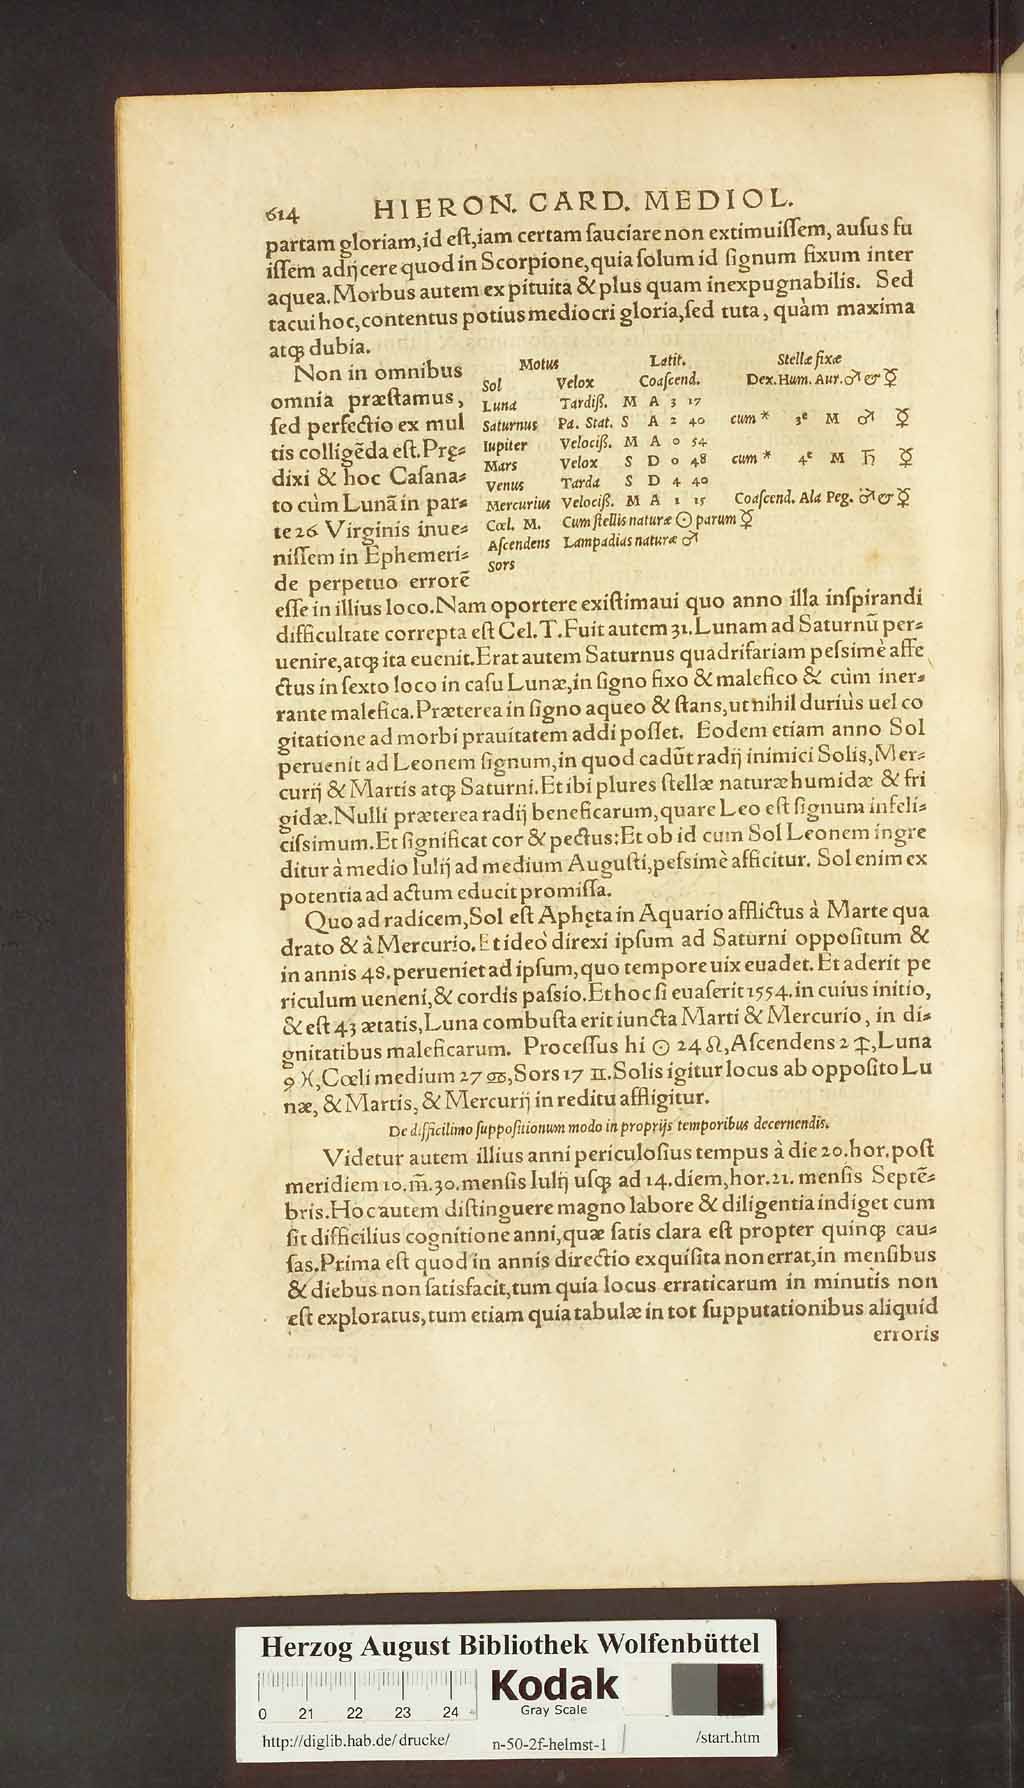 614 HIERON. CARD. MEDIOL.
partam gloriam, id eſt, iam certam ſauciare non extimuiſſem, auſus fu
iſſem adijcere quod in Scorpione, quia ſolum id ſignum fixum inter
aquea. Morbus autem ex pituita & plus quam inexpugnabilis. Sed
tacui hoc, contentus potius mediocri gloria, ſed tuta, quàm maxima
atq; dubia.
Non in omnibus
omnia præſtamus,
ſed perfectio ex mul
tis colligẽda eſt. Prę⸗
dixi & hoc Caſana⸗
to cùm Lunã in par⸗
te 26 Virginis inue⸗
niſſem in Ephemeri⸗
de perpetuo errorẽ
Motus Latit. Stellæ fixæ
Sol Velox Coaſcend. Dex. Hum. Aur. ♂ & ☿
Luna Tardiß. M A 3 17
Saturnus Pa. Stat. S A 2 40 cum * 3ᵉ M ♂ ☿
Iupiter Velociß. M A 0 54
Mars Velox S D 0 48 cum * 4ᵉ M ♄ ☿
Venus Tarda S D 4 40
Mercurius Velociß. M A 1 15 Coaſcend. Ala Peg. ♂ & ☿
Cœl. M. Cum ſtellis naturæ ☉ parum ☿
Aſcendens Lampadias naturæ ♂
Sors
eſſe in illius loco. Nam oportere exiſtimaui quo anno illa inſpirandi
difficultate correpta eſt Cel. T. Fuit autem 31. Lunam ad Saturnũ per⸗
uenire, atq; ita euenit. Erat autem Saturnus quadrifariam peſsimè affe
ctus in ſexto loco in caſu Lunæ, in ſigno fixo & malefico & cùm iner⸗
rante malefica. Præterea in ſigno aqueo & ſtans, ut nihil duriùs uel co
gitatione ad morbi prauitatem addi poſſet. Eodem etiam anno Sol
peruenit ad Leonem ſignum, in quod cadũt radij inimici Solis, Mer⸗
curij & Martis atq; Saturni. Et ibi plures ſtellæ naturæ humidæ & fri
gidæ. Nulli præterea radij beneficarum, quare Leo eſt ſignum infeli⸗
ciſsimum. Et ſignificat cor & pectus: Et ob id cum Sol Leonem ingre
ditur à medio Iulij ad medium Auguſti, peſsimè afficitur. Sol enim ex
potentia ad actum educit promiſſa.
Quo ad radicem, Sol eſt Aphęta in Aquario afflictus à Marte qua
drato & à Mercurio. Et ideò direxi ipſum ad Saturni oppoſitum &
in annis 48. perueniet ad ipſum, quo tempore uix euadet. Et aderit pe
riculum ueneni, & cordis paſsio. Et hoc ſi euaſerit 1554. in cuius initio,
& eſt 43 ætatis, Luna combuſta erit iuncta Marti & Mercurio, in di⸗
gnitatibus maleficarum. Proceſſus hi ☉ 24 ♌, Aſcendens 2 ♐, Luna
9 ♓, Cœli medium 27 ♋, Sors 17 ♊. Solis igitur locus ab oppoſito Lu
næ, & Martis, & Mercurij in reditu affligitur.
De difficilimo ſuppoſitionum modo in proprijs temporibus decernendis.
Videtur autem illius anni periculoſius tempus à die 20. hor. poſt
meridiem 10. m̃. 30. menſis Iulij uſq; ad 14. diem, hor. 21. menſis Septẽ⸗
bris. Hoc autem diſtinguere magno labore & diligentia indiget cum
ſit difficilius cognitione anni, quæ ſatis clara eſt propter quinq; cau⸗
ſas. Prima eſt quod in annis directio exquiſita non errat, in menſibus
& diebus non ſatisfacit, tum quia locus erraticarum in minutis non
eſt exploratus, tum etiam quia tabulæ in tot ſupputationibus aliquid
erroris
Herzog August Bibliothek Wolfenbüttel
Kodak
Gray Scale
0 21 22 23 24
http://diglib.hab.de/drucke/ n-50-2f-helmst-1 /start.htm